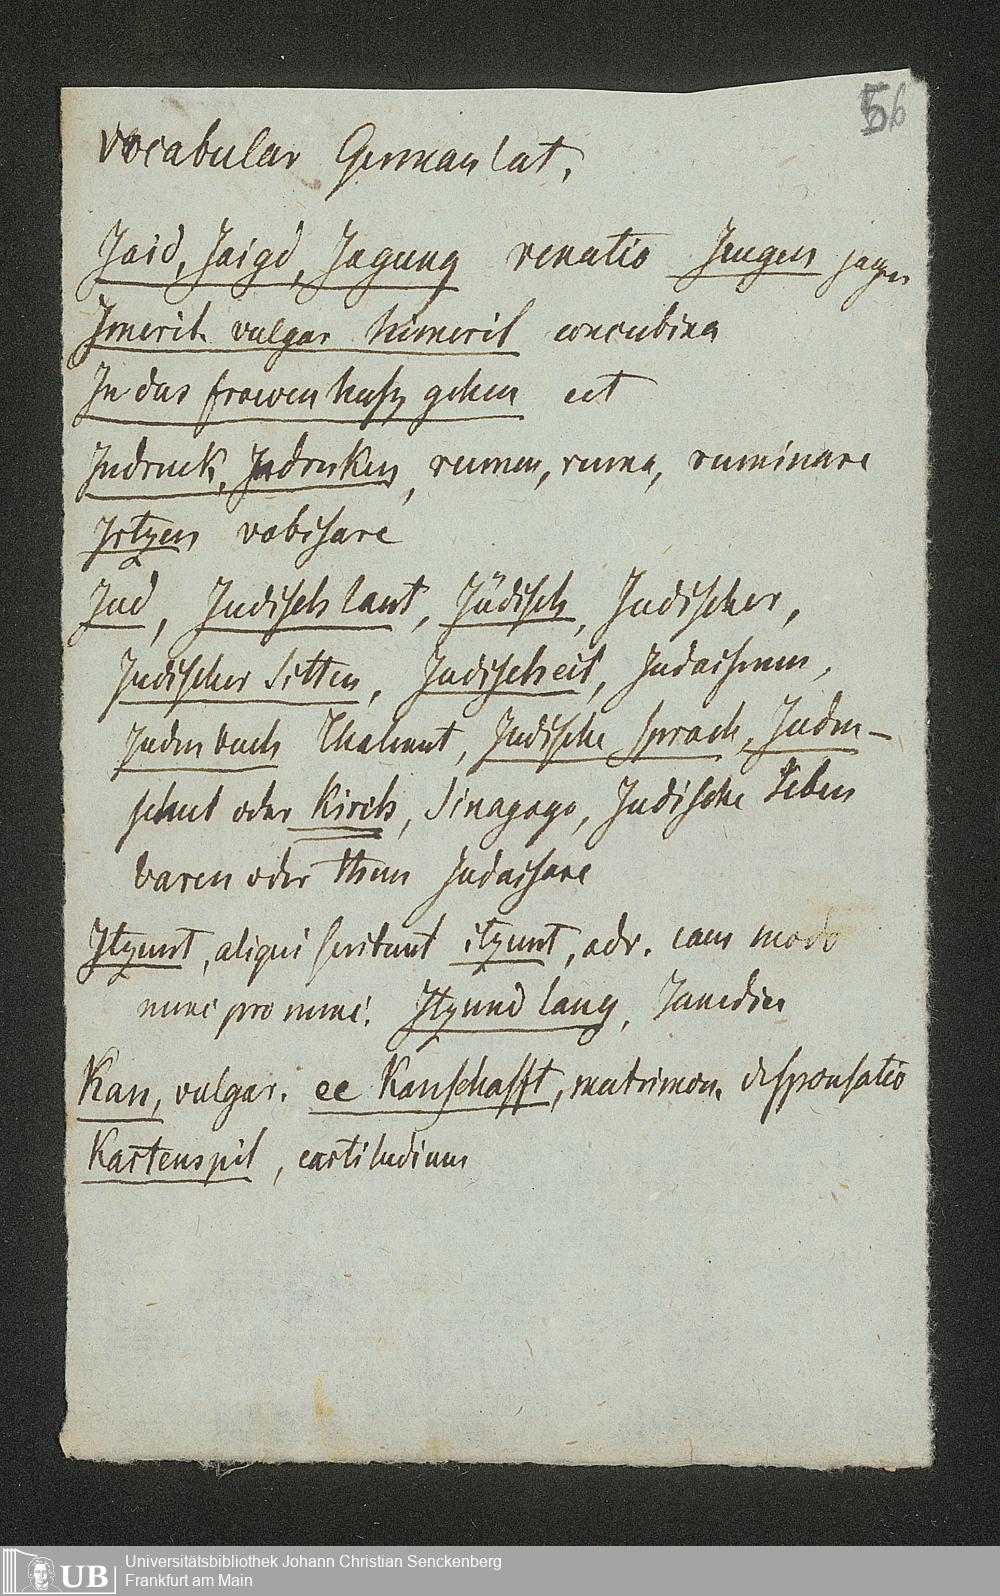 56
Vocabular German lat.
Jaid, Jaigd, Jagung venatio Jeugen jagen
Jmerit. vulgar kimerit concubina
In das frowen hußz gehen ect
Indruck, Indrucken, rumen, ruma, ruminare
Irtzen vobisare
Jud, Judisch lant, Jüdisch, Judischer,
Judischer Sitten, Judischeit, Judaismum,
Juden buch Thalmut, Judische sprach, Juden-
schul oder Kirch, Sinagoga, Judische leben
varen oder thun Judaisare
Itzunt, aliqui scribunt itzunt, adv. iam modo
nunc pro nunc. Itzund lang, Jamdiu
Kan, vulgar. ee Kanschafft, matrimon. disponsatio
Kartenspil, cartiludium
UB
Universitätsbibliothek Johann Christian Senckenberg
Frankfurt am Main